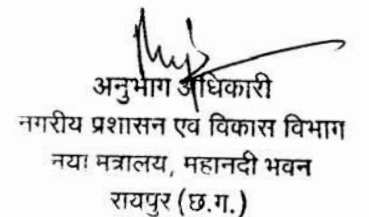 अनुभाग अधिकारी
नगरीय प्रशासन एवं विकास विभाग
नया मंत्रालय, महानदी भवन
रायपुर (छ.ग.)